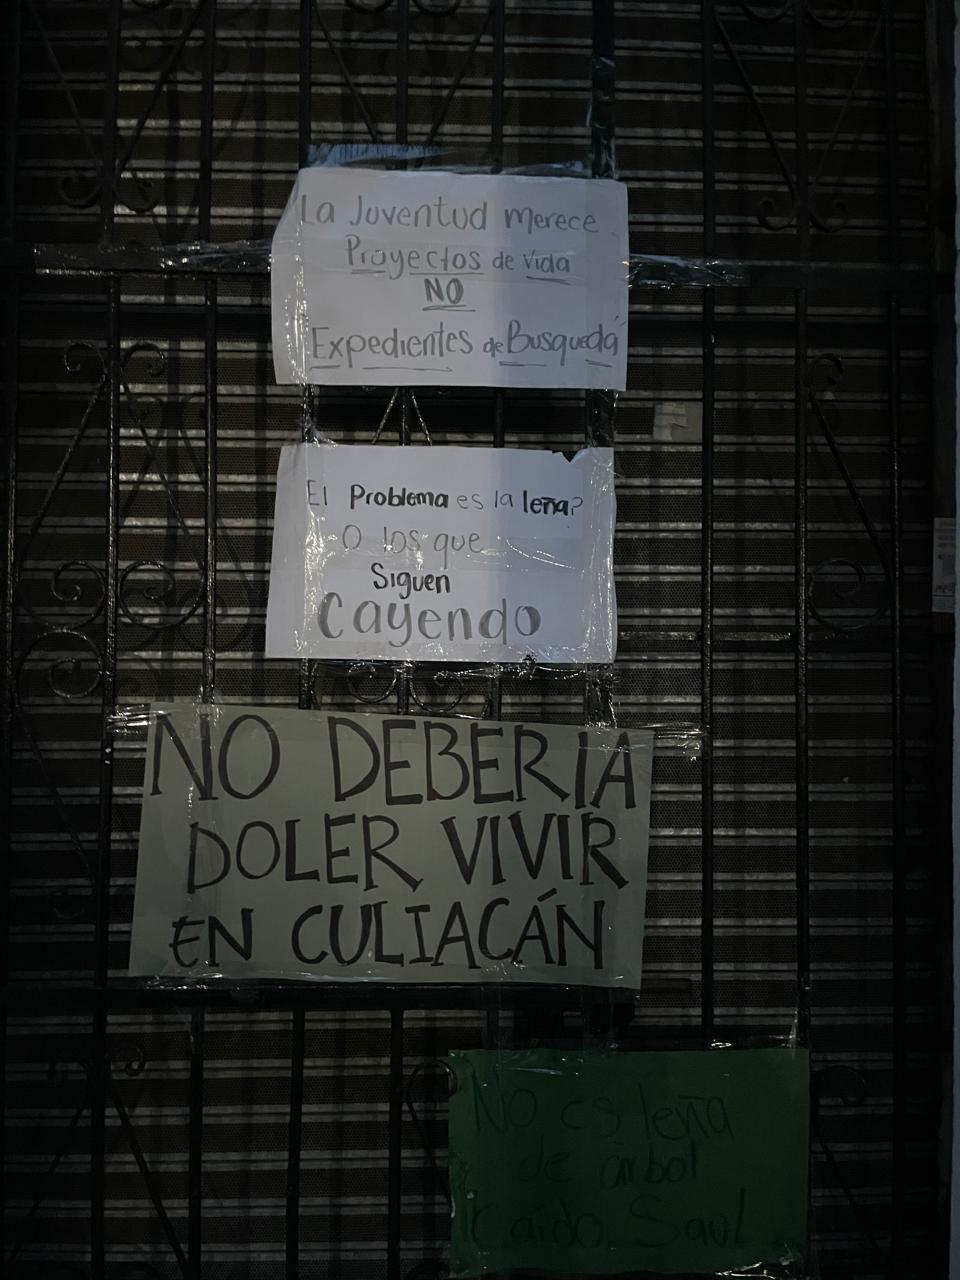 La Juventud merece
Proyectos de Vida
NO
Expedientes de Busqueda
El Problema es la leña?
O los que
Siguen
Cayendo
NO DEBERIA
DOLER VIVIR
EN CULIACÁN
No es leña
de árbol
Caído Saul